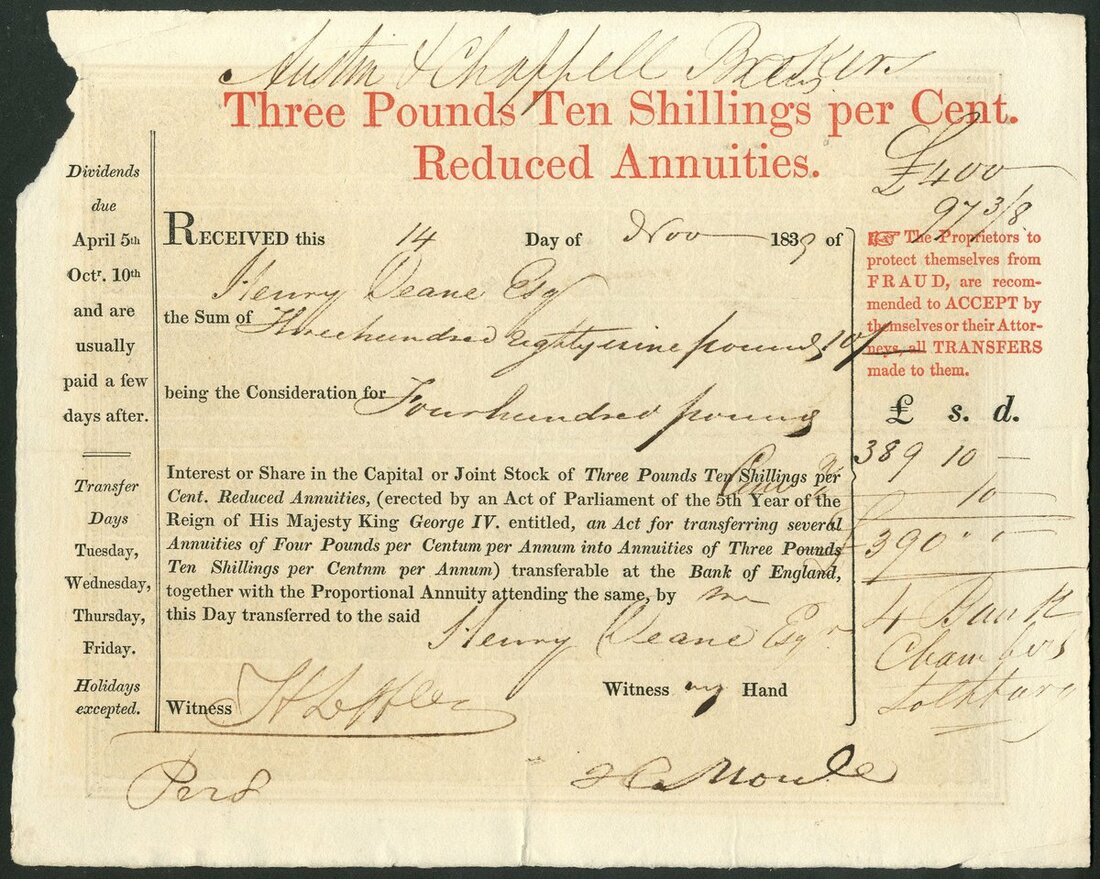 Austin & Chappell Brokers
Three Pounds Ten Shillings per Cent.
Reduced Annuities.
£400
97 3/8
Dividends
due
April 5th
Octr. 10th
and are
usually
paid a few
days after.
Transfer
Days
Tuesday,
Wednesday,
Thursday,
Friday.
Holidays
excepted.
RECEIVED this 14 Day of Nov 1839 of
Henry Deane Esq
the Sum of Threehundred eightynine pounds 10/
being the Consideration for Fourhundred pounds
Interest or Share in the Capital or Joint Stock of Three Pounds Ten Shillings per
Cent. Reduced Annuities, (erected by an Act of Parliament of the 5th Year of the
Reign of His Majesty King George IV. entitled, an Act for transferring several
Annuities of Four Pounds per Centum per Annum into Annuities of Three Pounds
Ten Shillings per Centnm per Annum) transferable at the Bank of England,
together with the Proportional Annuity attending the same, by me
this Day transferred to the said
Henry Deane Esqr
Witness my Hand
Witness
☞ The Proprietors to
protect themselves from
FRAUD, are recom-
mended to ACCEPT by
themselves or their Attor-
neys, all TRANSFERS
made to them.
£ s. d.
389 10 —
10
£390 " "
4 Bank
Chambers
Lothbury